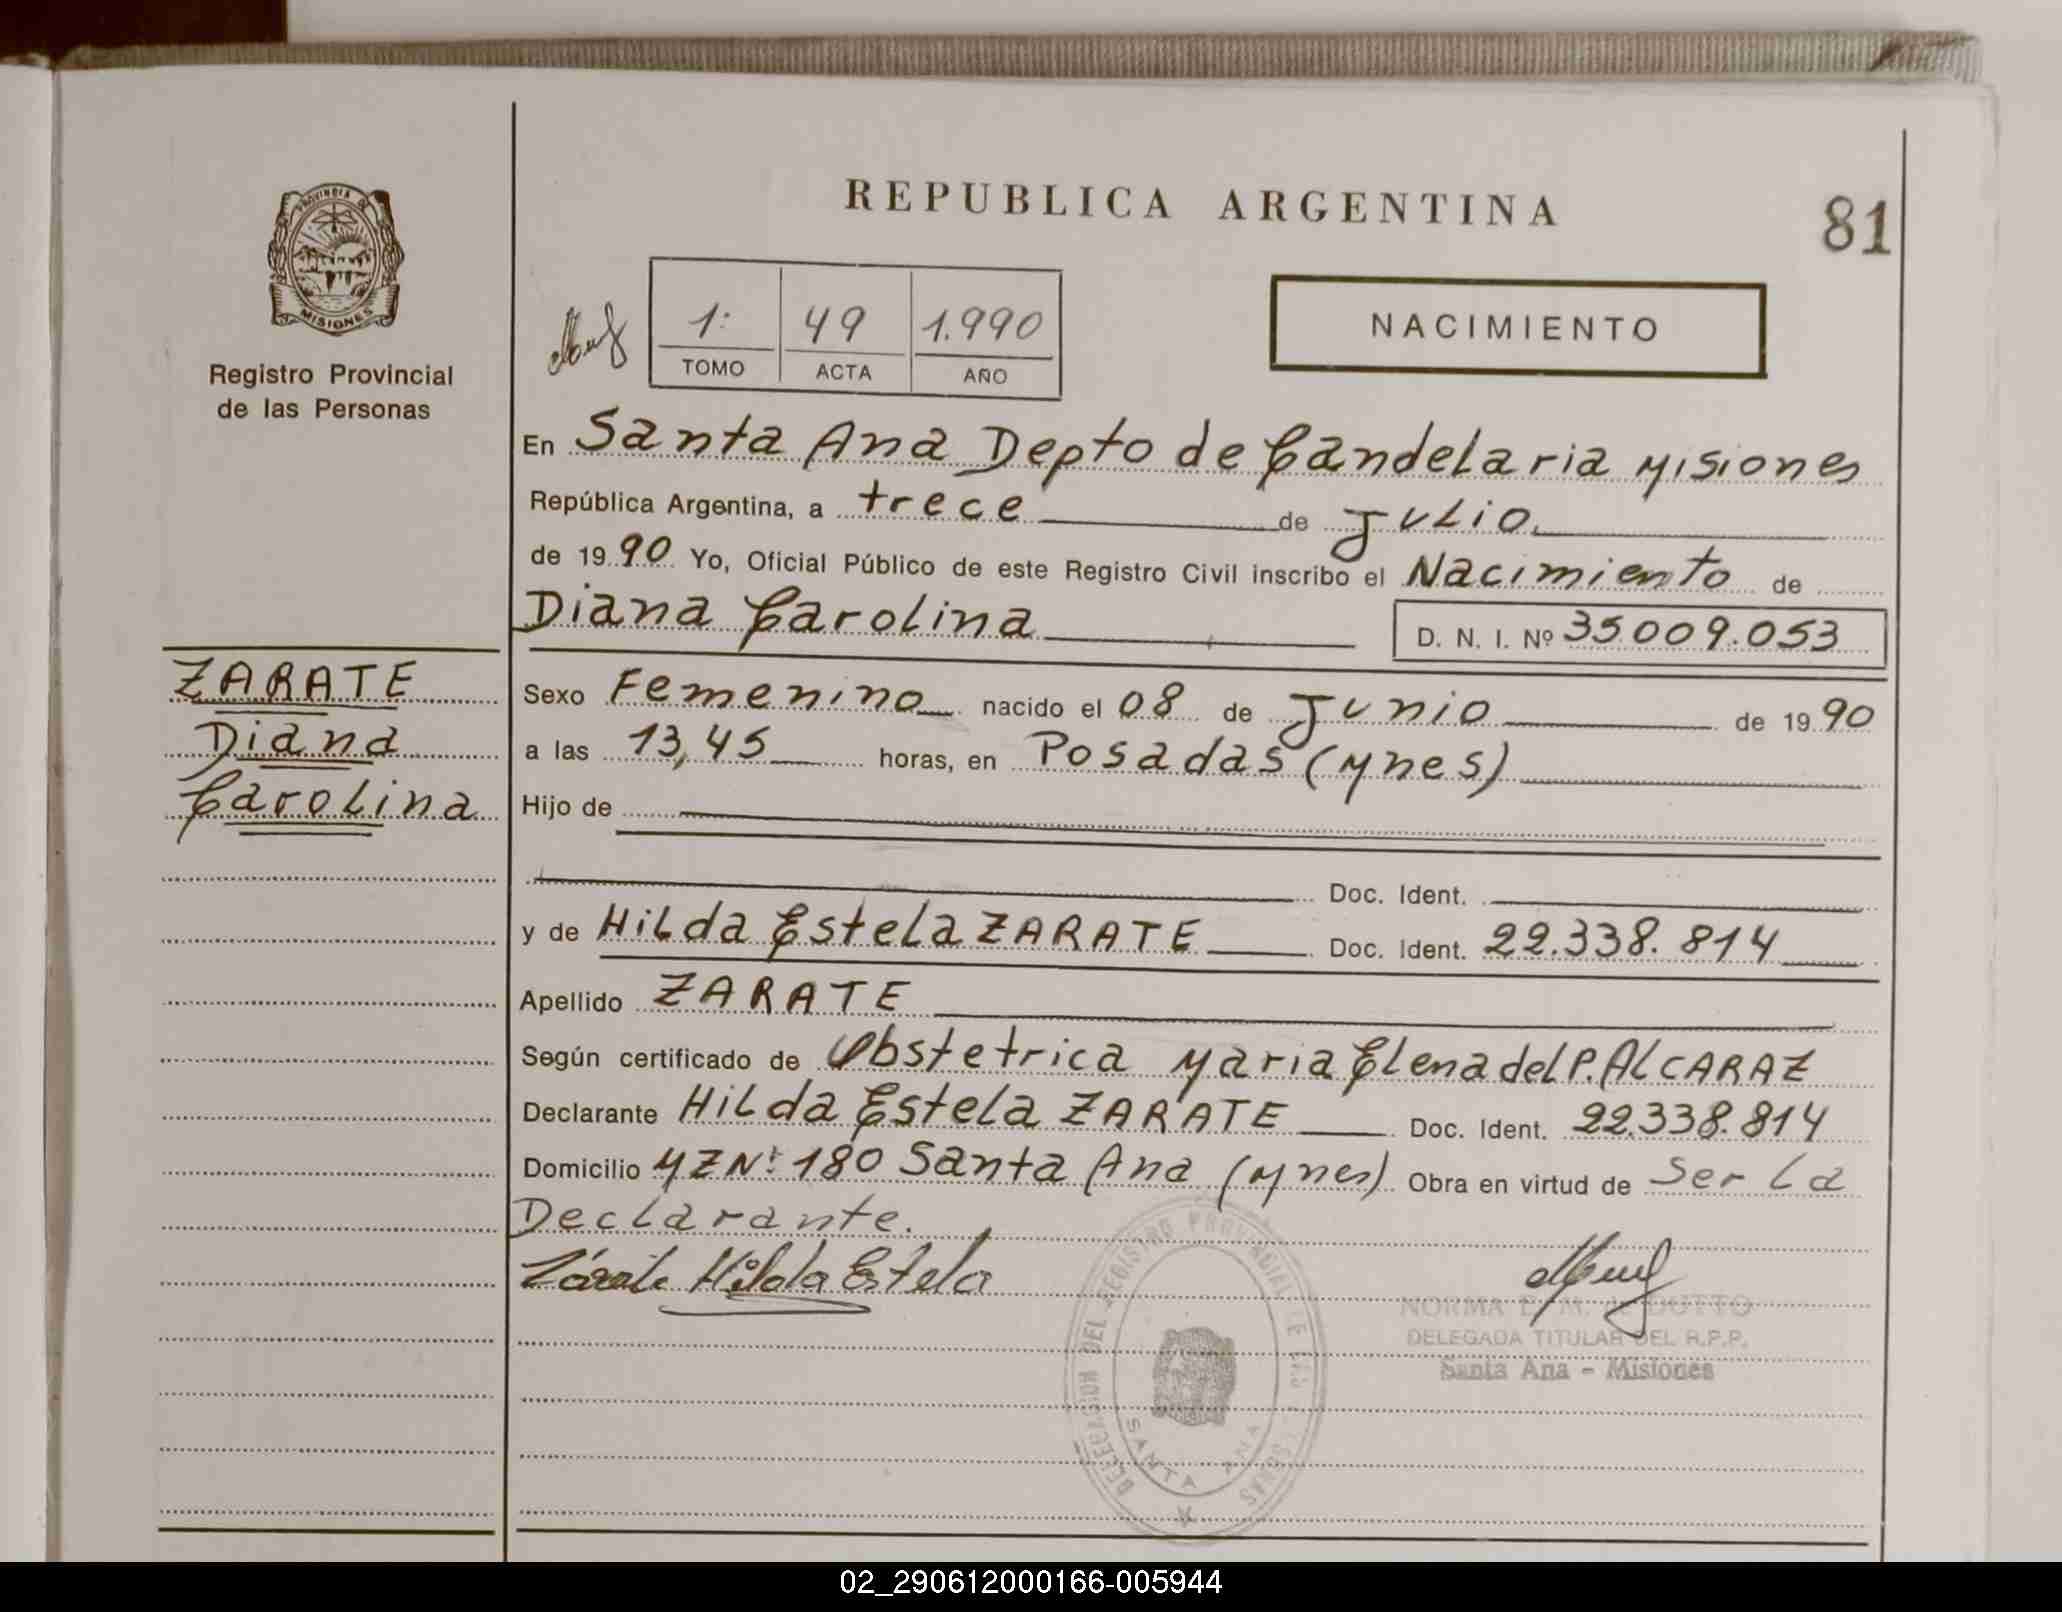 REPUBLICA ARGENTINA
81
PROVINCIA DE
MISIONES
Registro Provincial
de las Personas
1: 49 1.990
TOMO ACTA AÑO
NACIMIENTO
En Santa Ana Depto de Candelaria Misiones
República Argentina, a trece de Julio
de 1990 Yo, Oficial Público de este Registro Civil inscribo el Nacimiento de
Diana Carolina D. N. I. Nº 35.009.053
ZARATE
Diana
Carolina
Sexo Femenino nacido el 08 de Junio de 1990
a las 13,45 horas, en Posadas (Mnes)
Hijo de
Doc. Ident.
y de Hilda Estela ZARATE Doc. Ident. 22.338.814
Apellido ZARATE
Según certificado de Obstetrica Maria Elena del P. ALCARAZ
Declarante Hilda Estela ZARATE Doc. Ident. 22.338.814
Domicilio MZ Nº 180 Santa Ana (Mnes) Obra en virtud de Ser la
Declarante.
Zárate Hilda Estela
NORMA E. M. de DUTTO
DELEGADA TITULAR DEL R.P.P.
Santa Ana - Misiones
DELEGACION DEL REGISTRO PROVINCIAL DE LAS PERSONAS
SANTA ANA
02_290612000166-005944